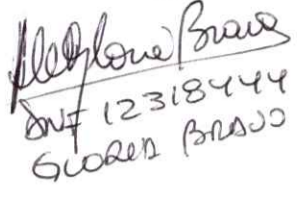 Bravo
DNI 12318444
GLORIA BRAVO